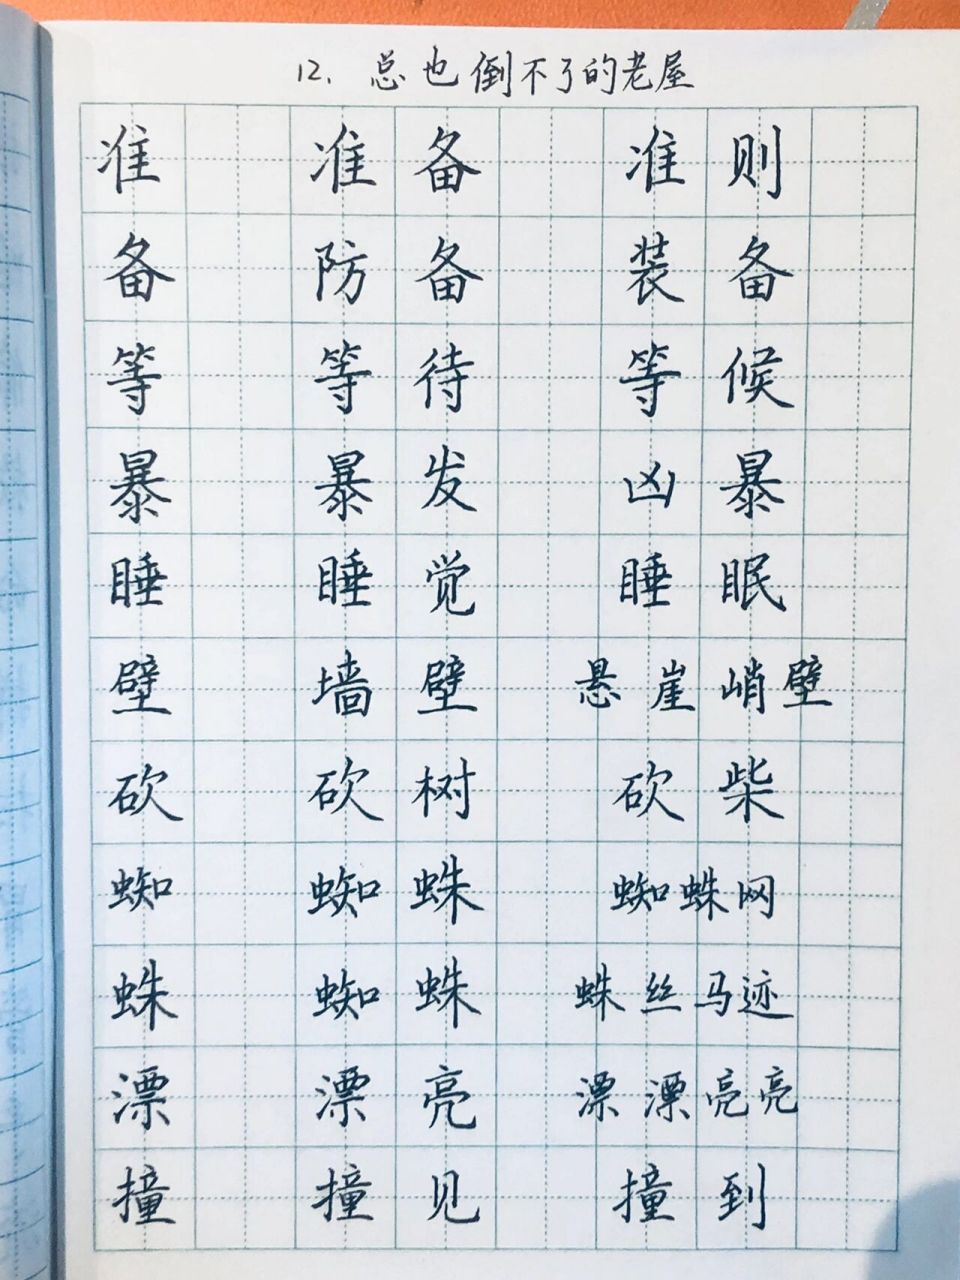 12. 总也倒不了的老屋
准 准备 准则
备 防备 装备
等 等待 等候
暴 暴发 凶暴
睡 睡觉 睡眠
壁 墙壁 悬崖峭壁
砍 砍树 砍柴
蜘 蜘蛛 蜘蛛网
蛛 蜘蛛 蛛丝马迹
漂 漂亮 漂漂亮亮
撞 撞见 撞到